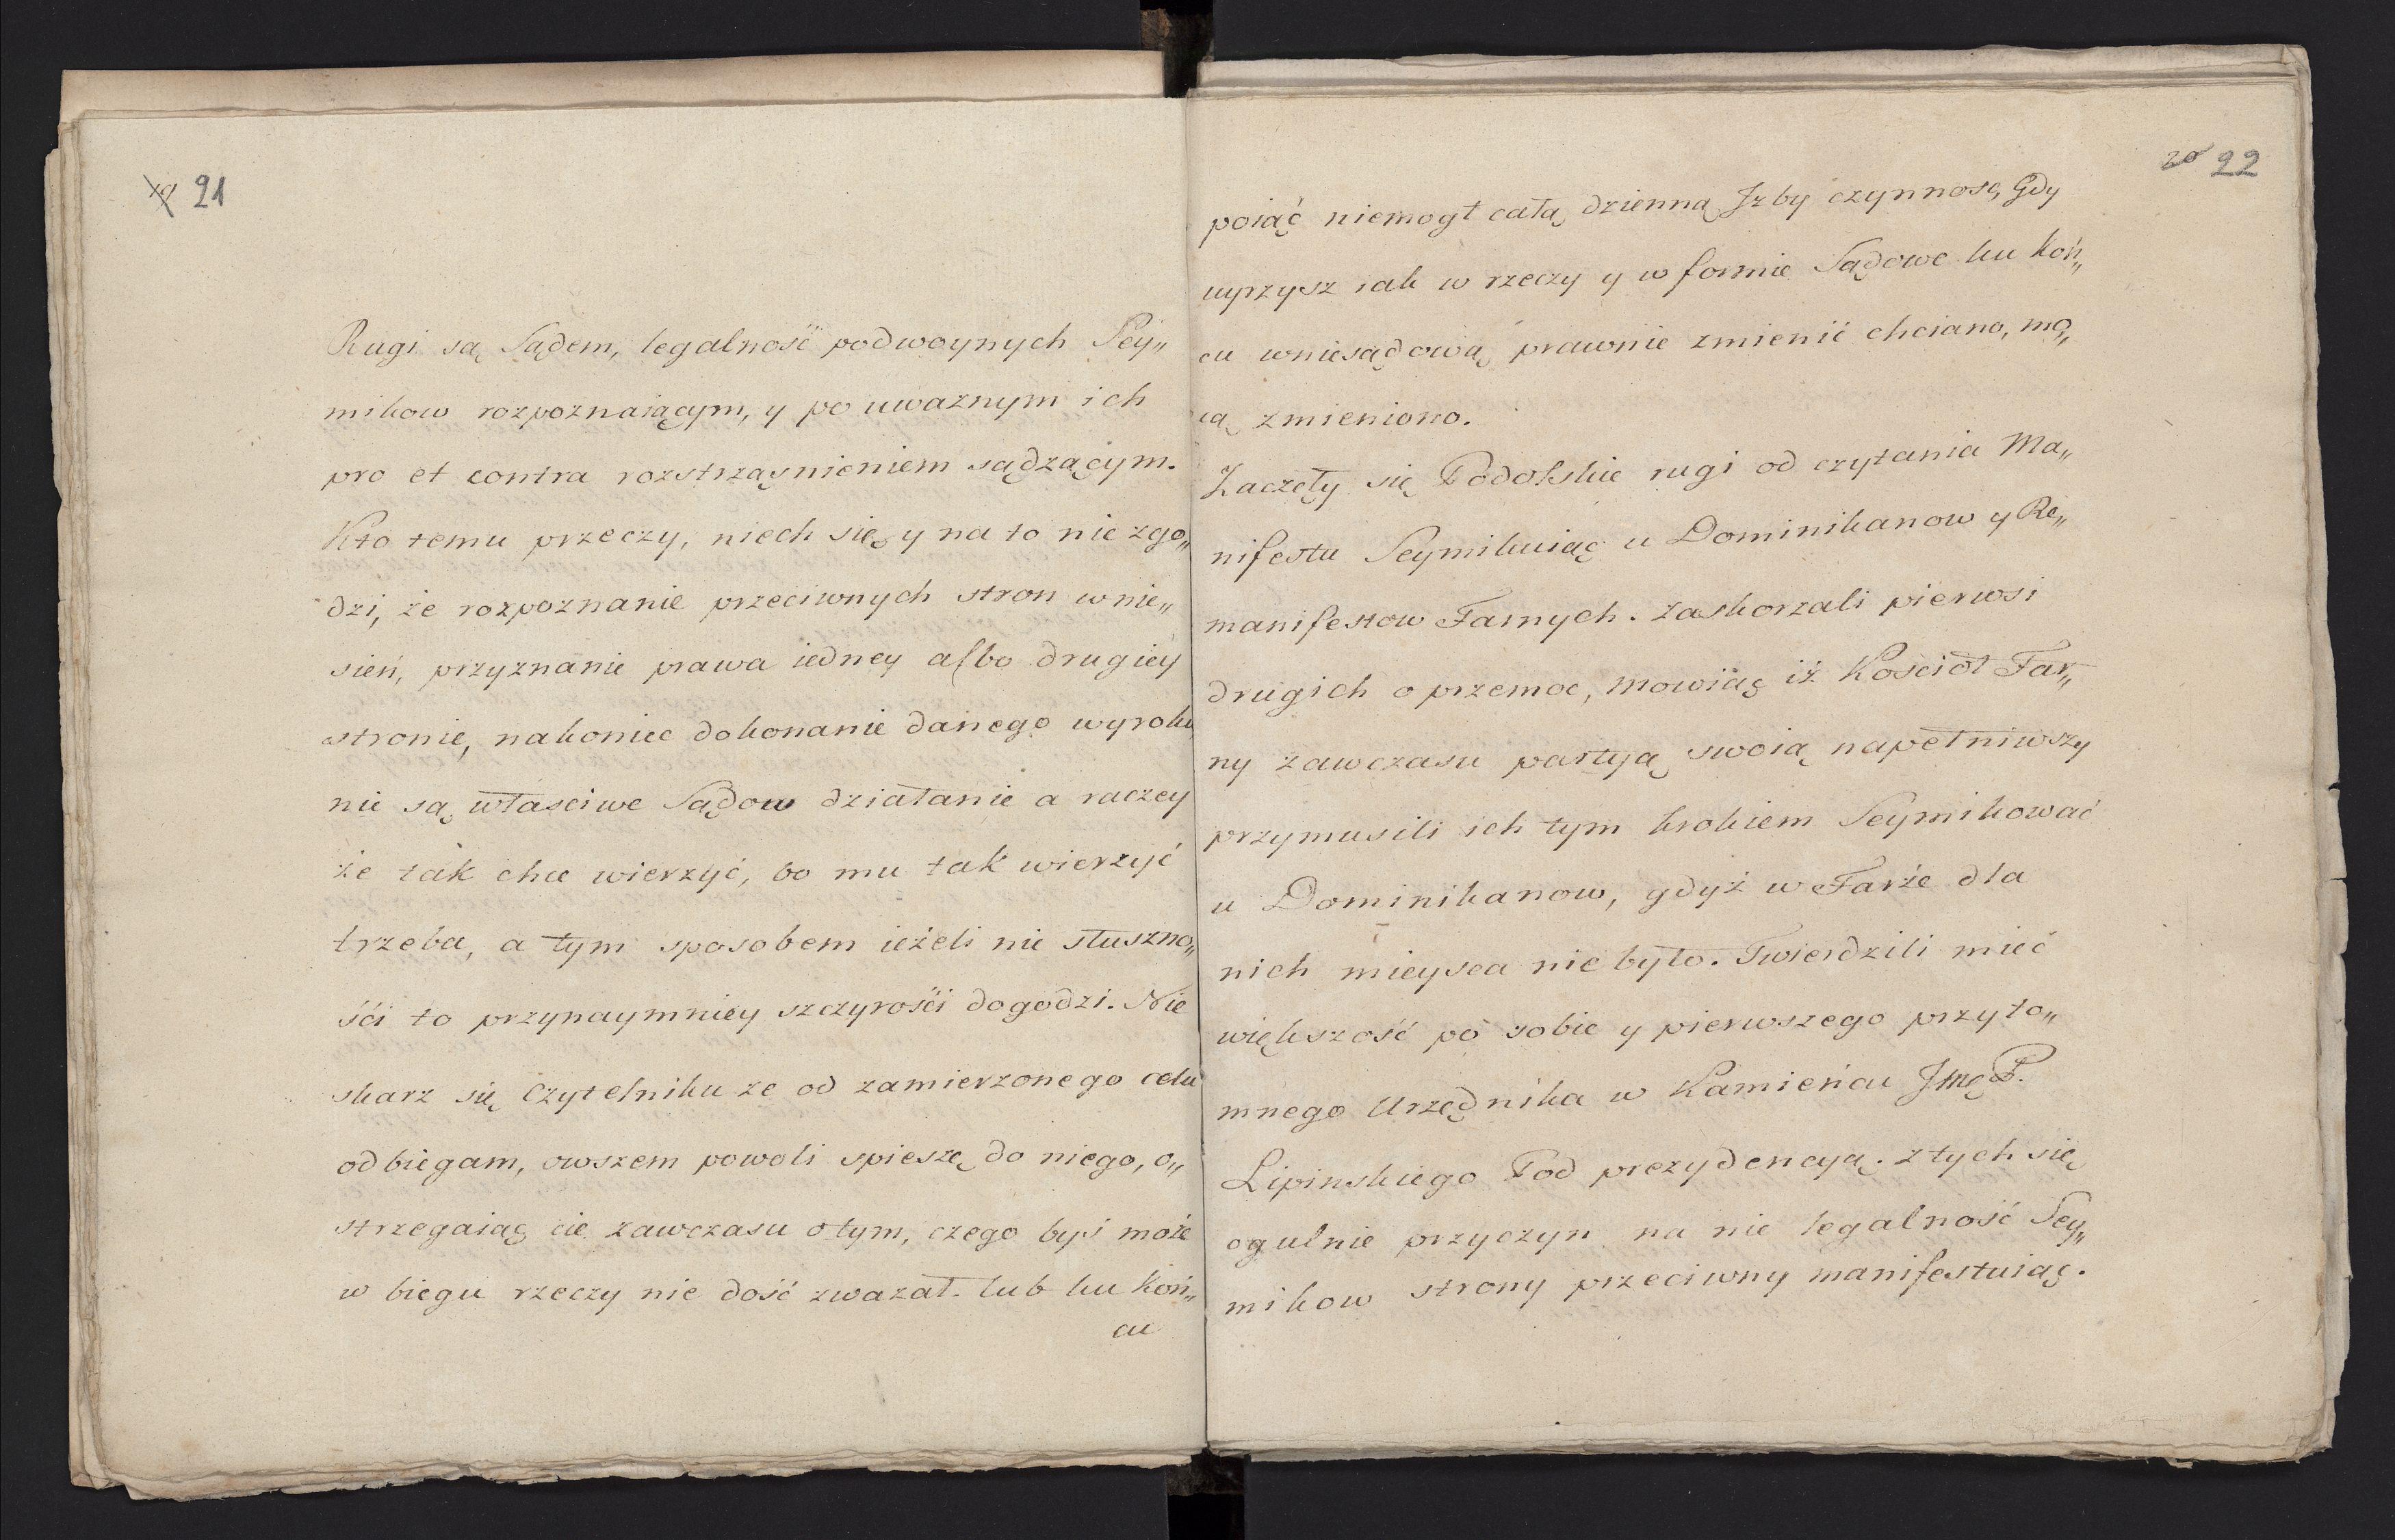 19 21
Rugi są Sądem, legalność podwoynych Sey„
mikow rozpoznaiącym, y po uwaznym ich
pro et contra rozstrząsnieniem sądzącym.
Kto temu przeczy, niech się y na to nie zgo„
dzi, że rozpoznanie przeciwnych stron wnie„
sień, przyznanie prawa iedney albo drugiéy
stronie, nakoniec dokonanie danego wyroku
nie są właściwe Sądow działanie a raczey
że tak chce wierzyć, bo mu tak wierzyć
trzeba, a tym sposobem ieżeli nie słuszno„
śći to przynaymniéy szczyrośći dogodzi. Nie
skarz się Czytelniku ze od zamierzonego celu
odbiegam, owszem powoli spieszę do niego, o„
strzegaiąc cię zawczasu o tym, czego byś może
w biegu rzeczy nie dość zwazał. lub ku koń„
cu
20 22
poiąć niemogł całą dzienną Izby czynnosc, Gdy
uyrzysz iak w rzeczy y w formie Sądowe ku koń„
cu wniesądową prawnie zmienić chciano, mo„
cą zmieniono.
Zaczęły się Podolskie rugi od czytania Ma„
nifestu Seymikuiąc u Dominikanow y Re„
manifestow Farnych. zaskorzali pierwsi
drugich o przemoc, mowiąc iż Kościoł Far„
ny zawczasu partyą swoią napełniwszy
przymusili ich tym krokiem Seymikować
u Dominikanow, gdyż w Farże dla
nich mieysca nie było. Twierdzili mieć
większość po sobie y pierwszego przyto„
mnego Urzędnika w Kamieńcu Jmć P.
Lipinskiego Pod prezydencyą. z tych się
ogulnie przyczyn na nie legalność Sey„
mikow strony przeciwny manifestuiąc.